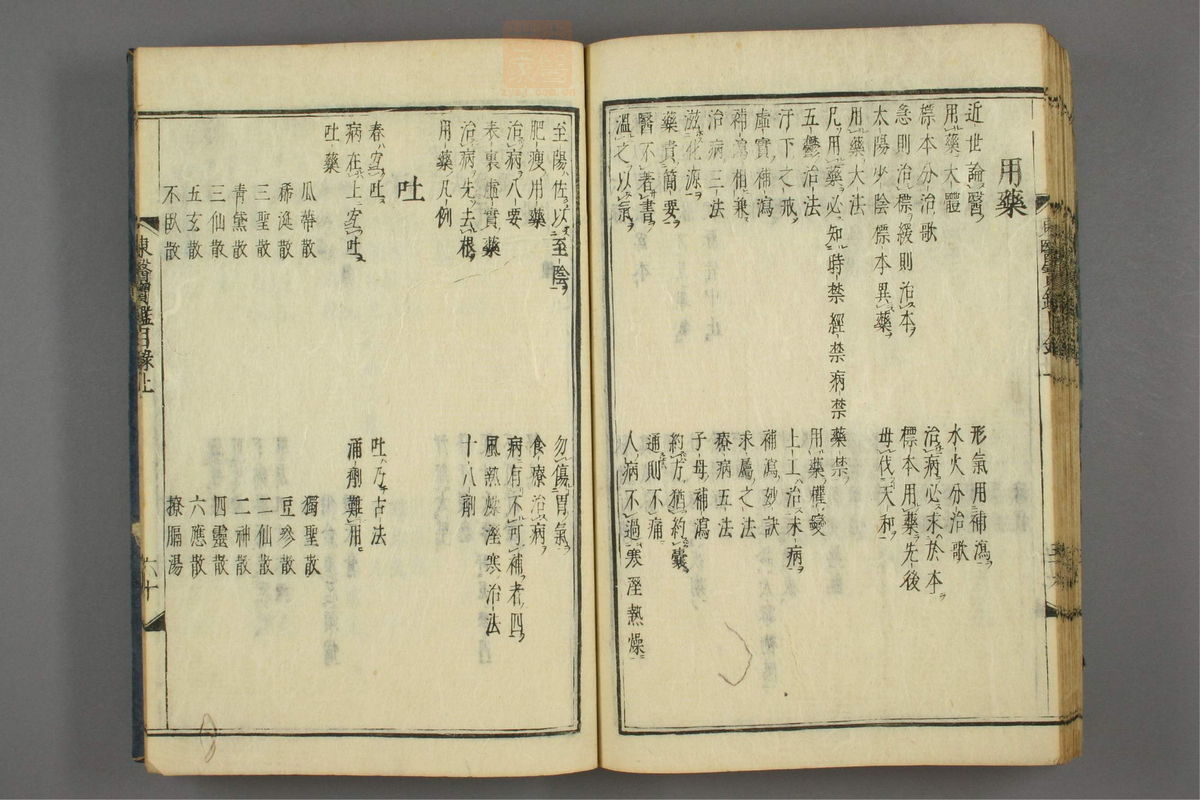 用藥
近世論醫 形氣用補瀉
用藥大體 水火分治歌
標本分治歌 治病必求於本
急則治標緩則治本 標本用藥先後
太陽少陰標本異藥 毋伐天和
用藥大法
凡用藥必知時禁經禁病禁藥禁
五鬱治法 用藥權變
汗下之戒 上工治未病
虛實補瀉 補瀉妙訣
補瀉相兼 求屬之法
治病三法 療病五法
滋化源 子母補瀉
藥貴簡要 約方猶約囊
醫不著書 通則不痛
溫之以氣 人病不過寒溼熱燥
至陽佐以至陰 勿傷胃氣
肥瘦用藥 食療治病
治病八要 病有不可補者四
表裏虛實藥 風熱燥溼寒治法
治病先去根 十八劑
用藥凡例
吐
春宜吐 吐乃古法
病在上宜吐 涌劑難用
吐藥
瓜蔕散 獨聖散
稀涎散 豆參散
三聖散 二仙散
青黛散 二神散
三仙散 四靈散
五玄散 六應散
不臥散 撩膈湯
東醫寶鑑目錄上 六十